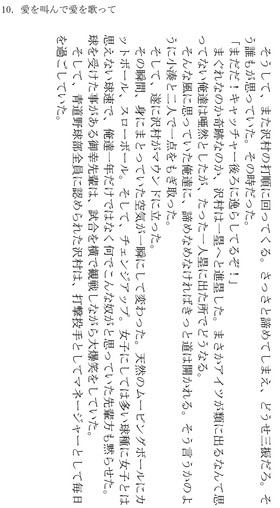 10. 愛を叫んで愛を歌って
そうして、また沢村の打順に回ってくる。さっさと諦めてしまえ、どうせ三振だろ。そ
う誰もが思っていた。その時だった。
「まだ！キャッチャー後ろに逸らしてるぞ！」
まぐれなのか奇跡なのか、沢村は一塁へと進塁した。まさかアイツが類に出るなんて思
ってない俺達は唖然としたが、たった一人塁に出た所でどうなる。
そんな風に思っていた俺達に、諦めなめなければきっと道は開かれる。そう言うかのよ
うに小湊と二人で一点をもぎ取った。
そして、遂に沢村がマウンドに立った。
その瞬間、身にまとっていた空気が一瞬にして変わった。天然のムービングボールにカ
ットボール、スローボール。そして、チェンジアップ。女子にしては多い球種に女子とは
思えない球速で、俺達一年だけではなく何でこんな奴がと思っていた先輩方も黙らせた。
球を受けた事がある御幸先輩は、試合を横で観戦しながら大爆笑をしていた。
そして、青道野球部全員に認められた沢村は、打撃投手としてマネージャーとして毎日
を過ごしていた。